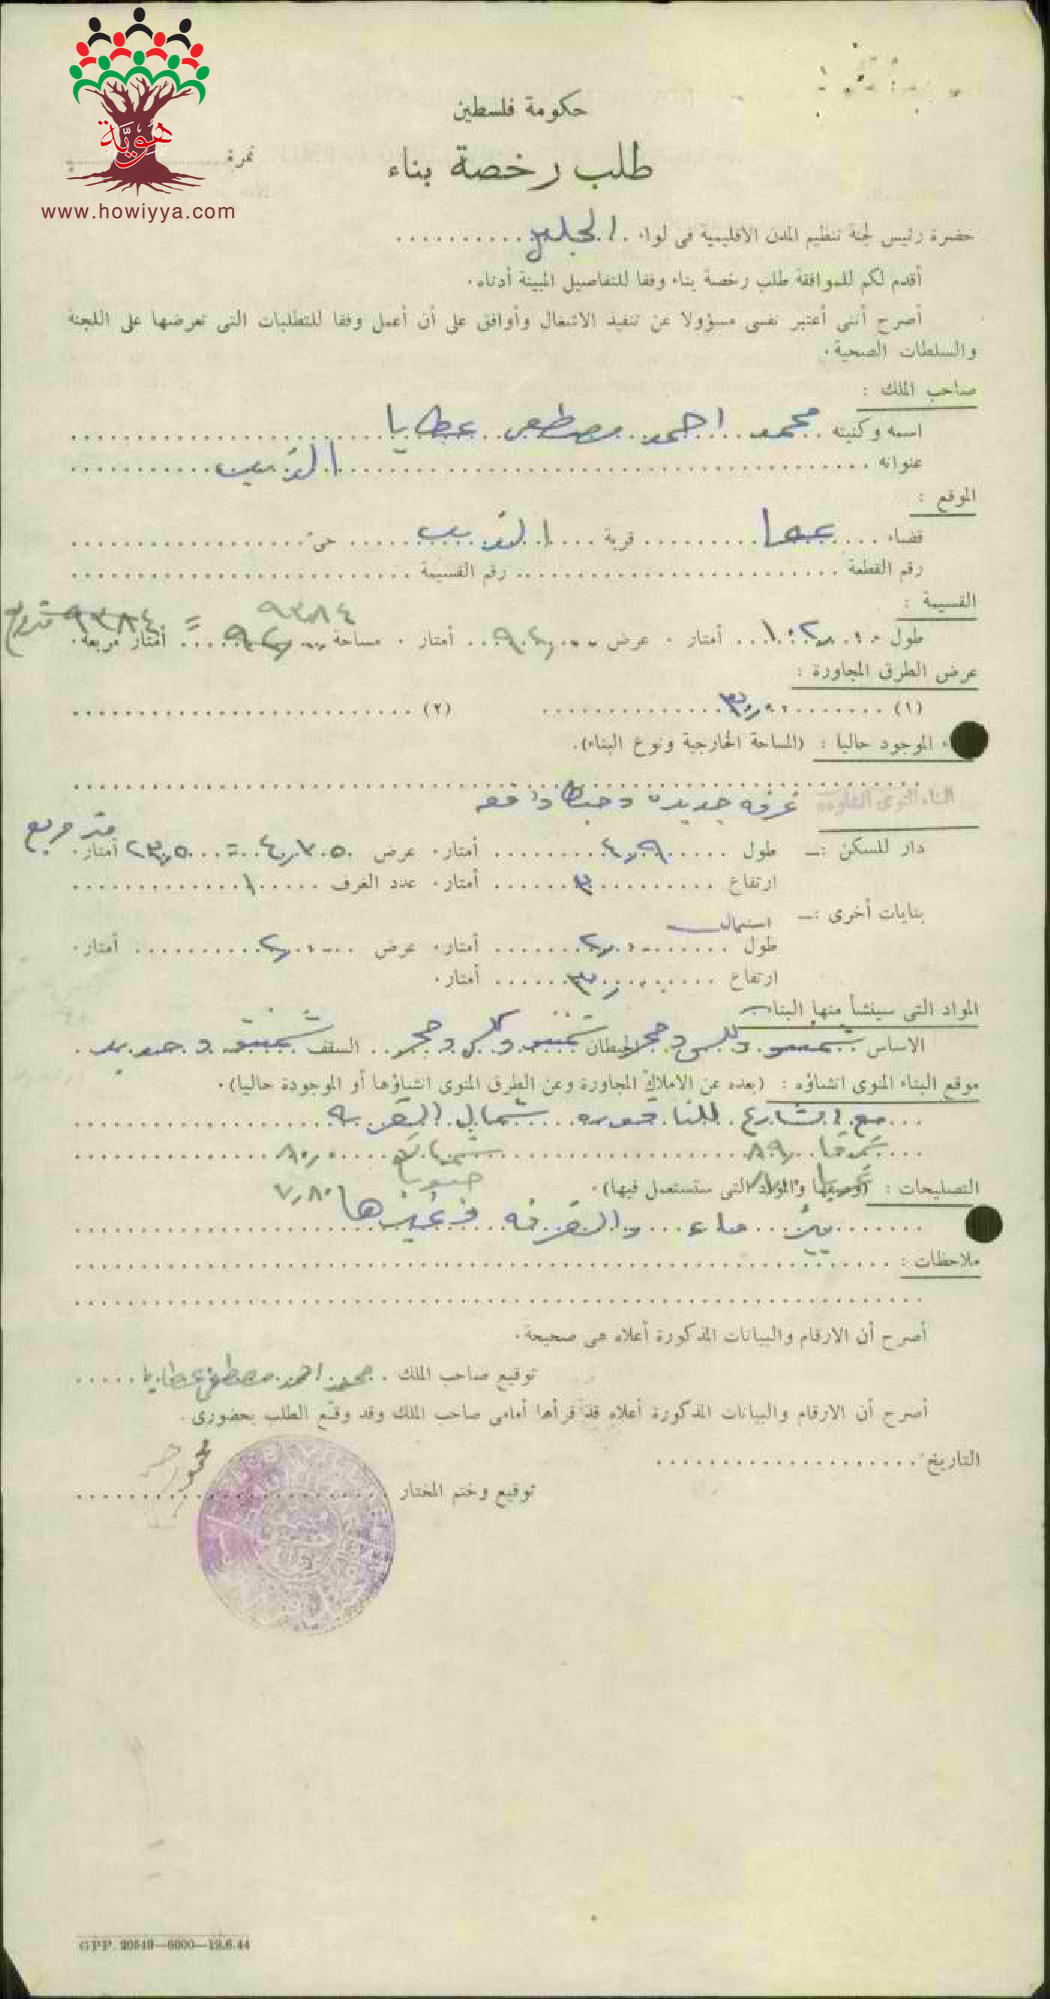 هوية
www.howiyya.com
حكومة فلسطين
طلب رخصة بناء
نمرة
حضرة رئيس لجنة تنظيم المدن الاقليمية في لواء الجليل
أقدم لكم للموافقة طلب رخصة بناء وفقا للتفاصيل المبينة أدناه.
أصرح أنني أعتبر نفسي مسؤولا عن تنفيذ الاشغال وأوافق على أن أعمل وفقا للمتطلبات التي تعرضها علي اللجنة
والسلطات الصحية.
صاحب الملك :
اسمه وكنيته محمد احمد مصطفى عطايا
عنوانه الزيب
الموقع :
قضاء عكا قرية الزيب حي
رقم القطعة رقم القسيمة
القسيمة :
٩٣٨٤
طول ١٠٢،٠٠ أمتار. عرض ٩٢،٠٠ أمتار. مساحة = ٩٣٨٤ أمتار مربعة.
عرض الطرق المجاورة :
(١) (٢)
الموجود حاليا : (المساحة الخارجية ونوع البناء).
البناء المنوي انشاؤه غرفه جديده
دار للسكن :— طول ٤،٩٠ أمتار. عرض ٤،٧٠ = ٢٣،٥٠ أمتار. متر مربع
ارتفاع ٣ أمتار. عدد الغرف ١
بنايات أخرى :—
طول ٢،٠٠ أمتار. عرض ٢،٠٠ أمتار.
ارتفاع ٣،٠٠ أمتار.
المواد التي سينشأ منها البناء
الاساس شمنتو وكلس وحجر الحيطان شمنتو وكلس وحجر السقف شمنتو وحديد
موقع البناء المنوي انشاؤه : (بعده عن الاملاك المجاورة وعن الطرق المنوي انشاؤها أو الموجودة حاليا).
مع الشارع للناقوره شمال القريه
شرقا ٨٩ شمالا ٨٠،٠٠
جنوبا ٧،٨٠
التصليحات : (وصفها والمواد التي ستستعمل فيها).
بئر ماء والغرفه وغيرها
ملاحظات :
أصرح أن الارقام والبيانات المذكورة أعلاه هي صحيحة.
توقيع صاحب الملك محمد احمد مصطفى عطايا
أصرح أن الارقام والبيانات المذكورة أعلاه قد قرأها أمامي صاحب الملك وقد وقع الطلب بحضوري.
التاريخ
توقيع وختم المختار
GPP. 20549—6000—12.6.44